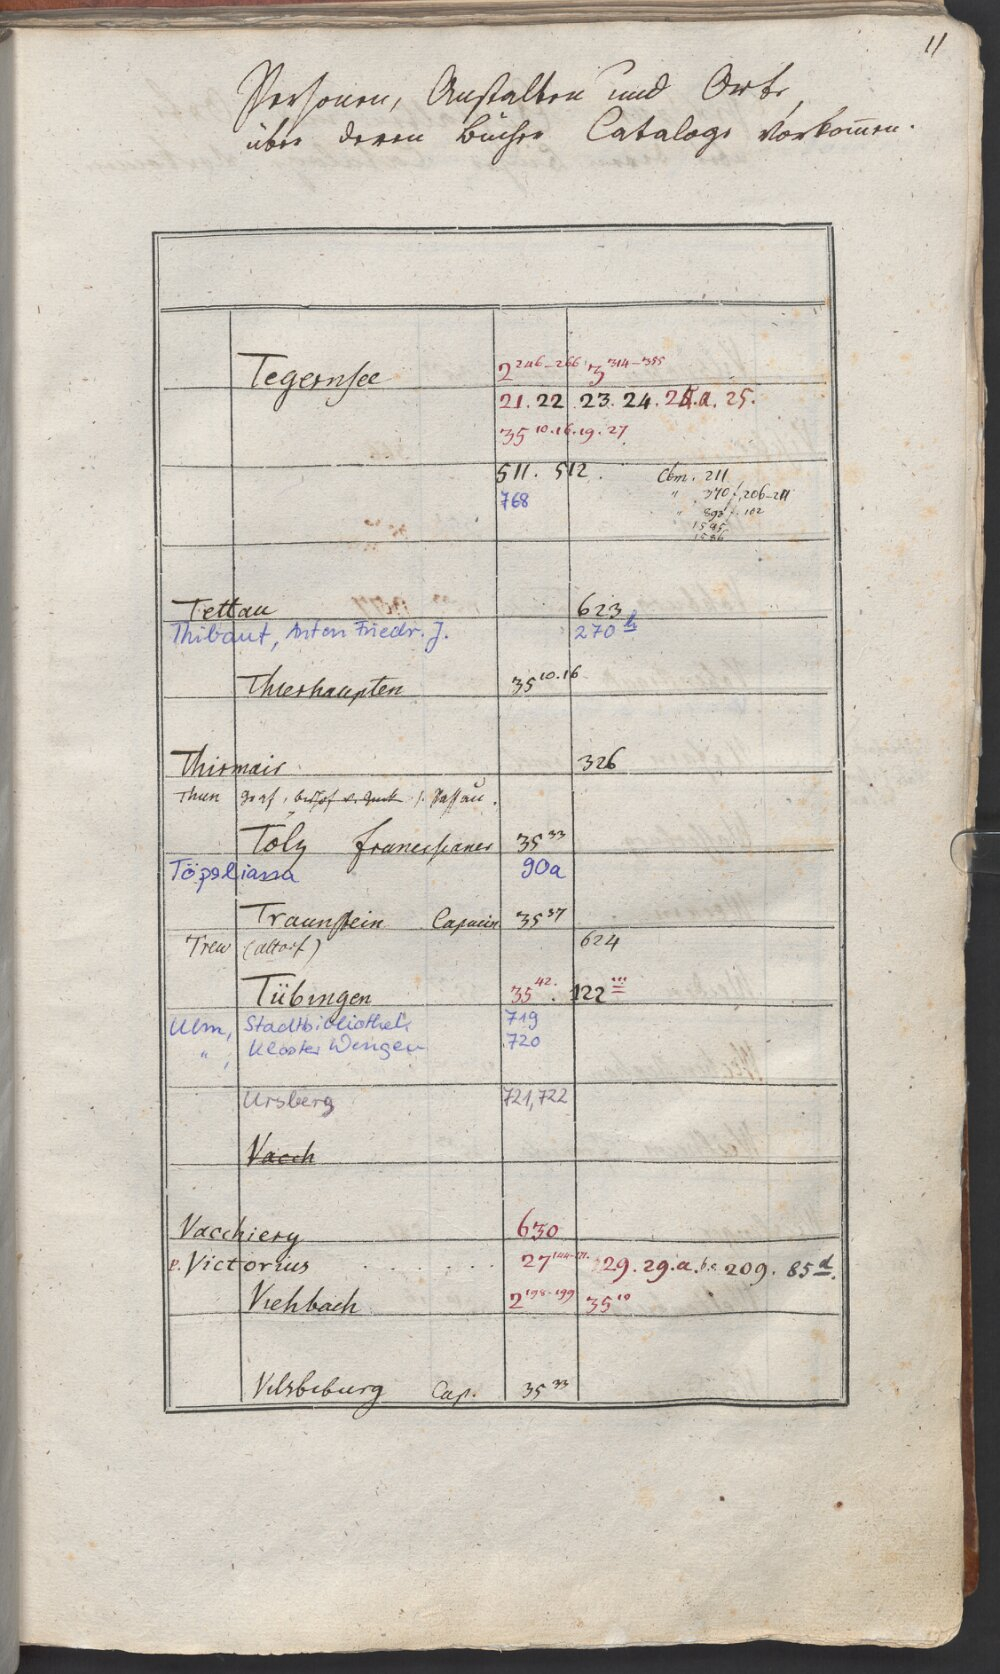 11
Personen, Anstalten und Orte,
über deren Bücher Cataloge vorkom̄en.
Tegernsee 2²⁴⁶⁻²⁶⁶ 3³¹⁴⁻³⁵⁵
21. 22 23. 24. 25.a. 25.
35¹⁰·¹⁶·¹⁹·²⁷
511. 512. Cbm. 211
768 " 370 f. 206-211
" 893 f. 102
1595
1596
Tettau 623
Thibaut, Anton Friedr. J. 270 h
Thierhaupten 35¹⁰·¹⁶
Thirmair 326
Thun Graf, Bischof v. s. Passau.
Tölz Franciscaner 35³³
Töpsliana 90a
Traunstein Capucin 35³⁷
Trew (Altorf) 624
Tübingen 35⁴². 122
Ulm, Stadtbibliothek 719
" , Kloster Wengen 720
Ursberg 721,722
Vacch
Vacchiery 630
P. Victorius . . . . . . 27 29. 29.a. b.c. 209. 85 d.
Viehbach 2¹⁹⁸⁻¹⁹⁹ 35¹⁰
Vilsbiburg Cap. 35³³